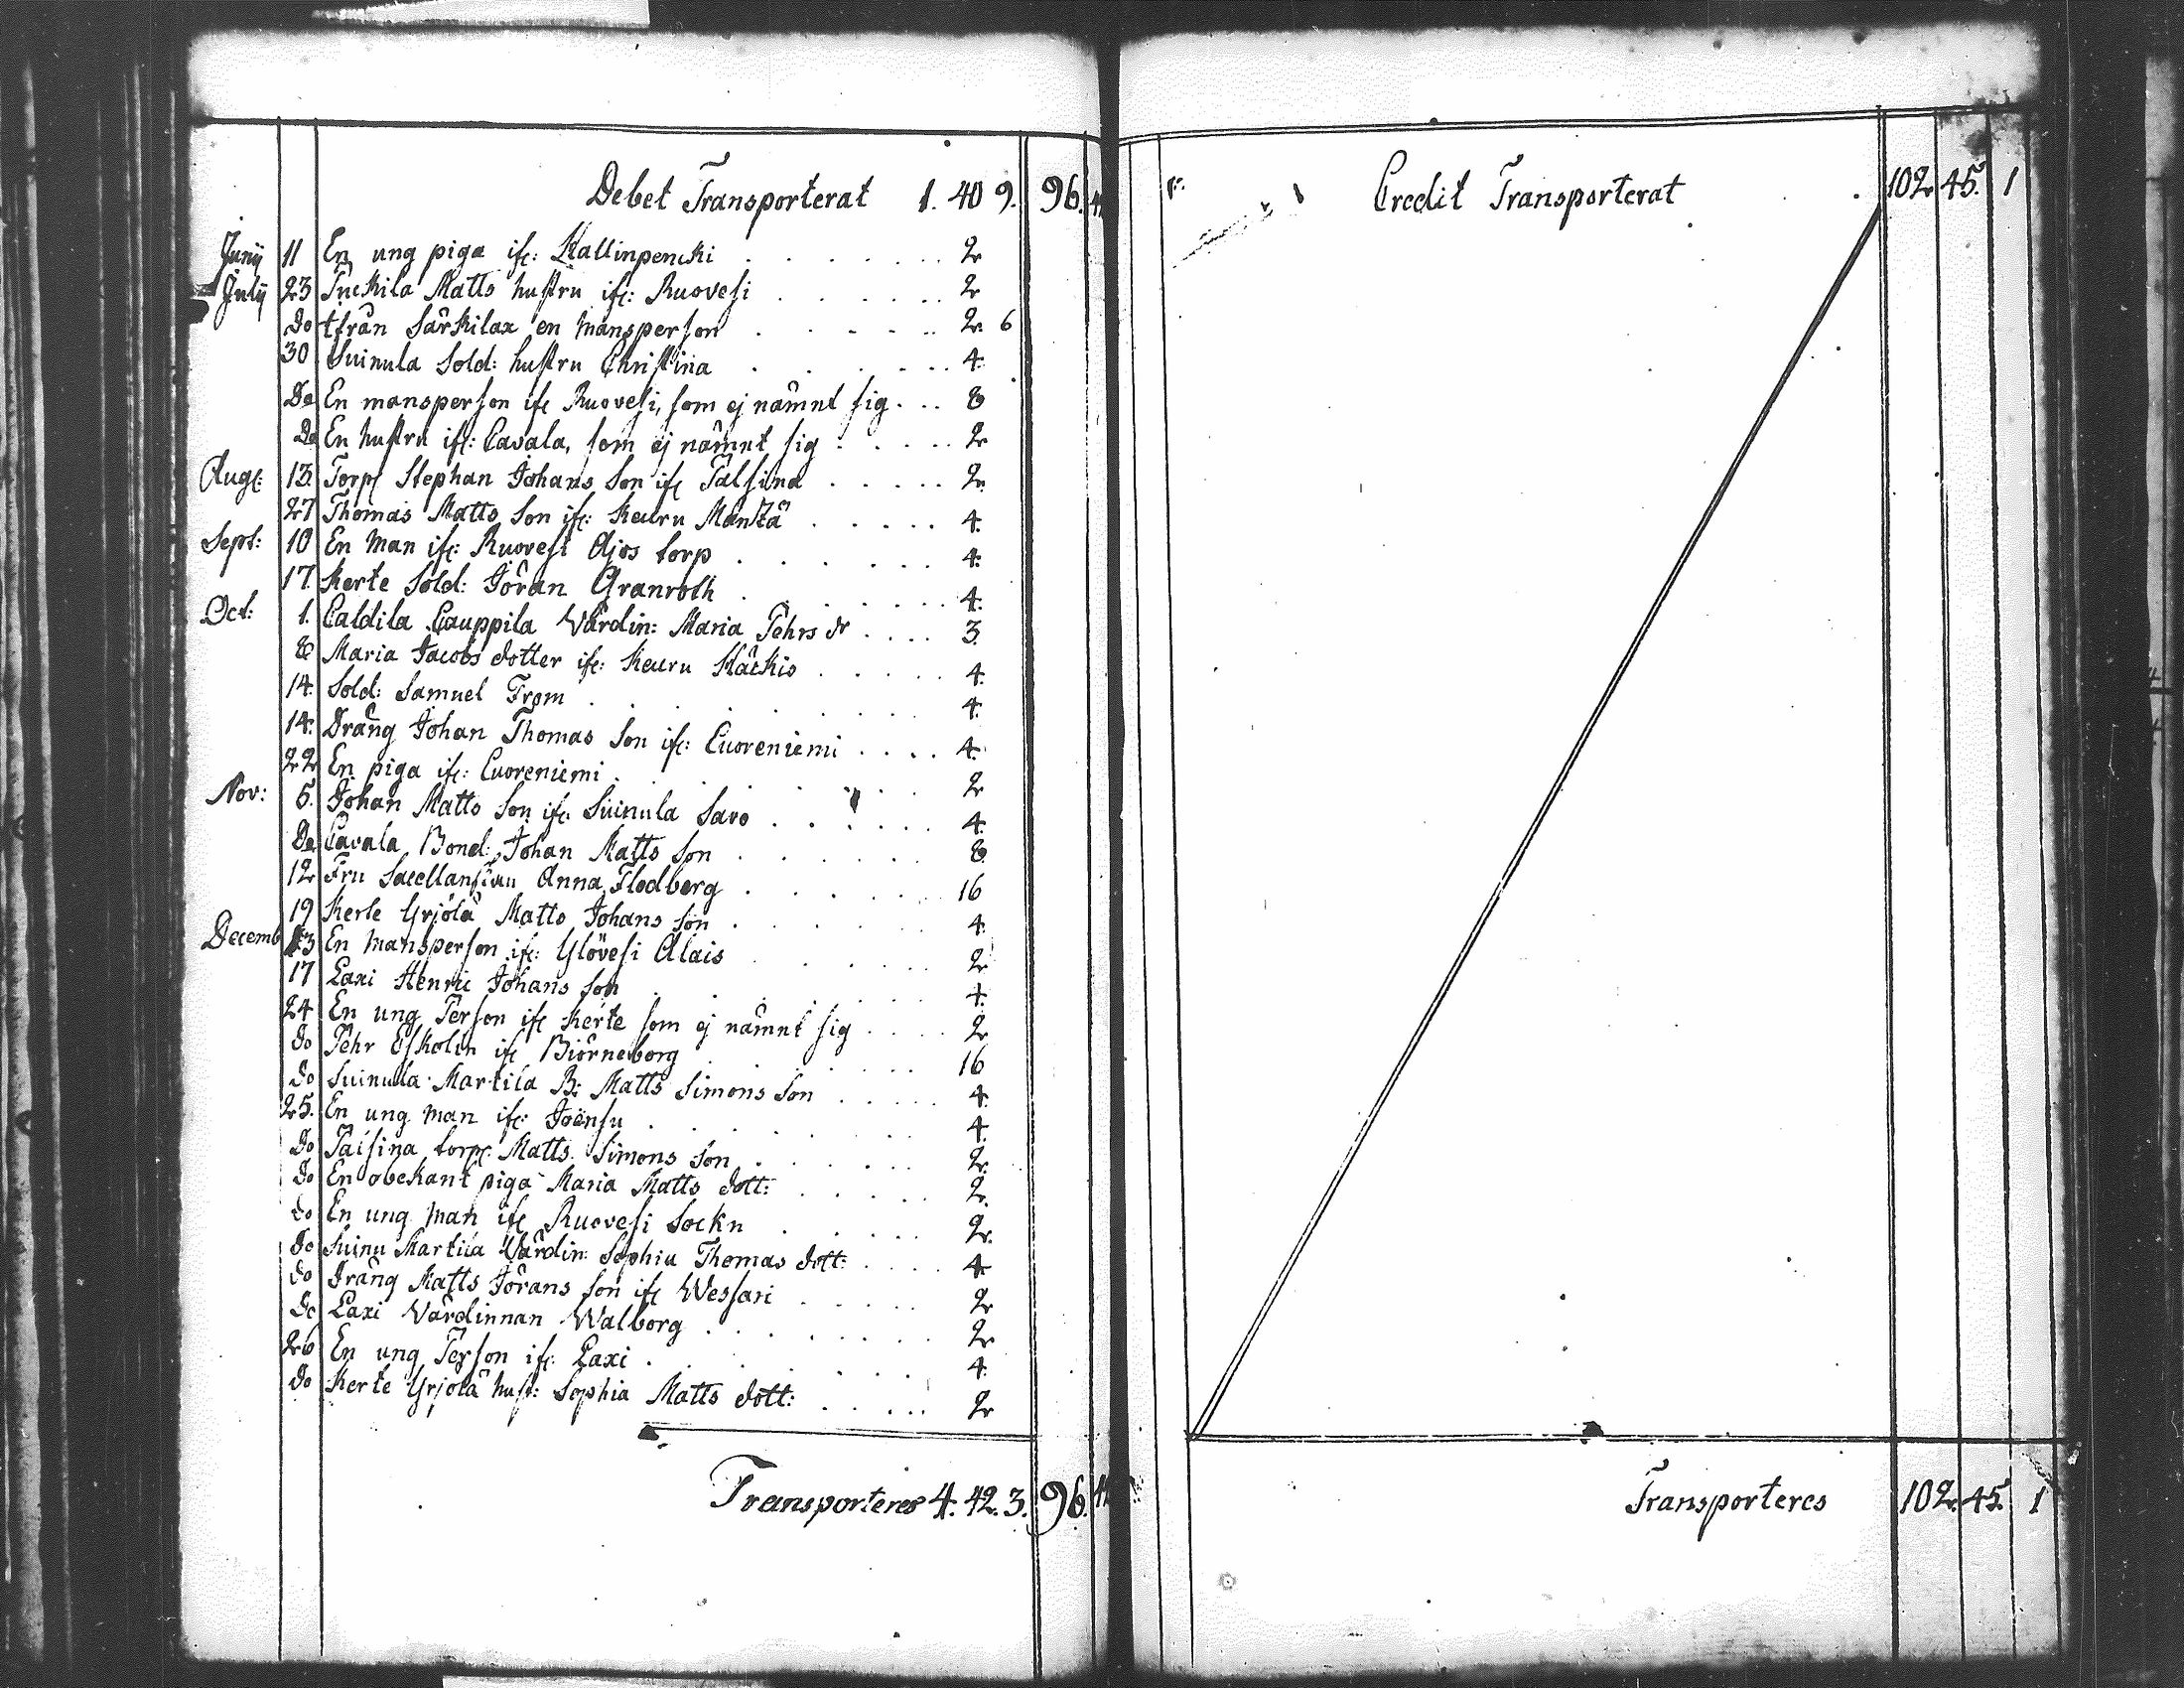 Debet Transporterat 1. 40 9. 96.
Junij 11 En ung piga ifr: Hallinpencki 2
Julij 23 Tuckila Matts hustru ifr: Ruovesi 2
do ifrån Särkilax en mansperson 2. 6
30 Suinula Sold: hustru Christina 4.
Do En mansperson ifr Ruovesi, som ej nämnt sig 8
Do En hustru ifr: Cavala, som ej nämnt sig 2
Aug: 13. Torp Stephan Johans Son ifr Talsina 2.
27 Thomas Matts Son ifr: Keuru Mänttä 4.
Sept: 10 En Man ifr: Ruovesi Ajos torp 4.
17. Kerte Sold: Jöran Granroth 4.
Oct: 1. Caldila Cauppila Värdin: Maria Pehrs dr 3.
8 Maria Jacobs dotter ifr: Keuru Häckis 4.
14. Sold: Samuel From 4.
14. Dräng Johan Thomas Son ifr: Cuoreniemi 4.
22 En piga ifr: Cuoreniemi 2
Nov: 5. Johan Matts Son ifr: Suinula Savo 4.
Do Cavala Bond: Johan Matts Son 8.
12 Fru Sacellanskan Anna Flodberg 16
19 Kerte Yrjölä Matts Johans Son 4.
Decemb 13 En Mansperson ifr: Ylövesi Alais 2
17 Laxi Henric Johans Son 4.
24 En ung Person ifr Kerte som ej nämnt sig 2
do Pehr Eskolin ifr Biörneborg 16
do Suinula Martila B: Matts Simons Son 4.
25. En ung man ifr: Joënsu 4.
Do Paisina torp: Matts Simons Son 2.
do En obekant piga Maria Matts dott: 2.
do En ung man ifr Ruovesi Sockn 2.
do Suinu Martila Värdin: Sophia Thomas dott: 4.
do Dräng Matts Jörans Son ifr Wessari 2
do Laxi Värdinnan Walborg 2
26 En ung Person ifr: Laxi 4.
do Kerte Yrjölä hust: Sophia Matts dott: 2
Transporteres 4. 42. 3. 96.
Credit Transporterat 102 45. 1
Transporteres 102. 45. 1